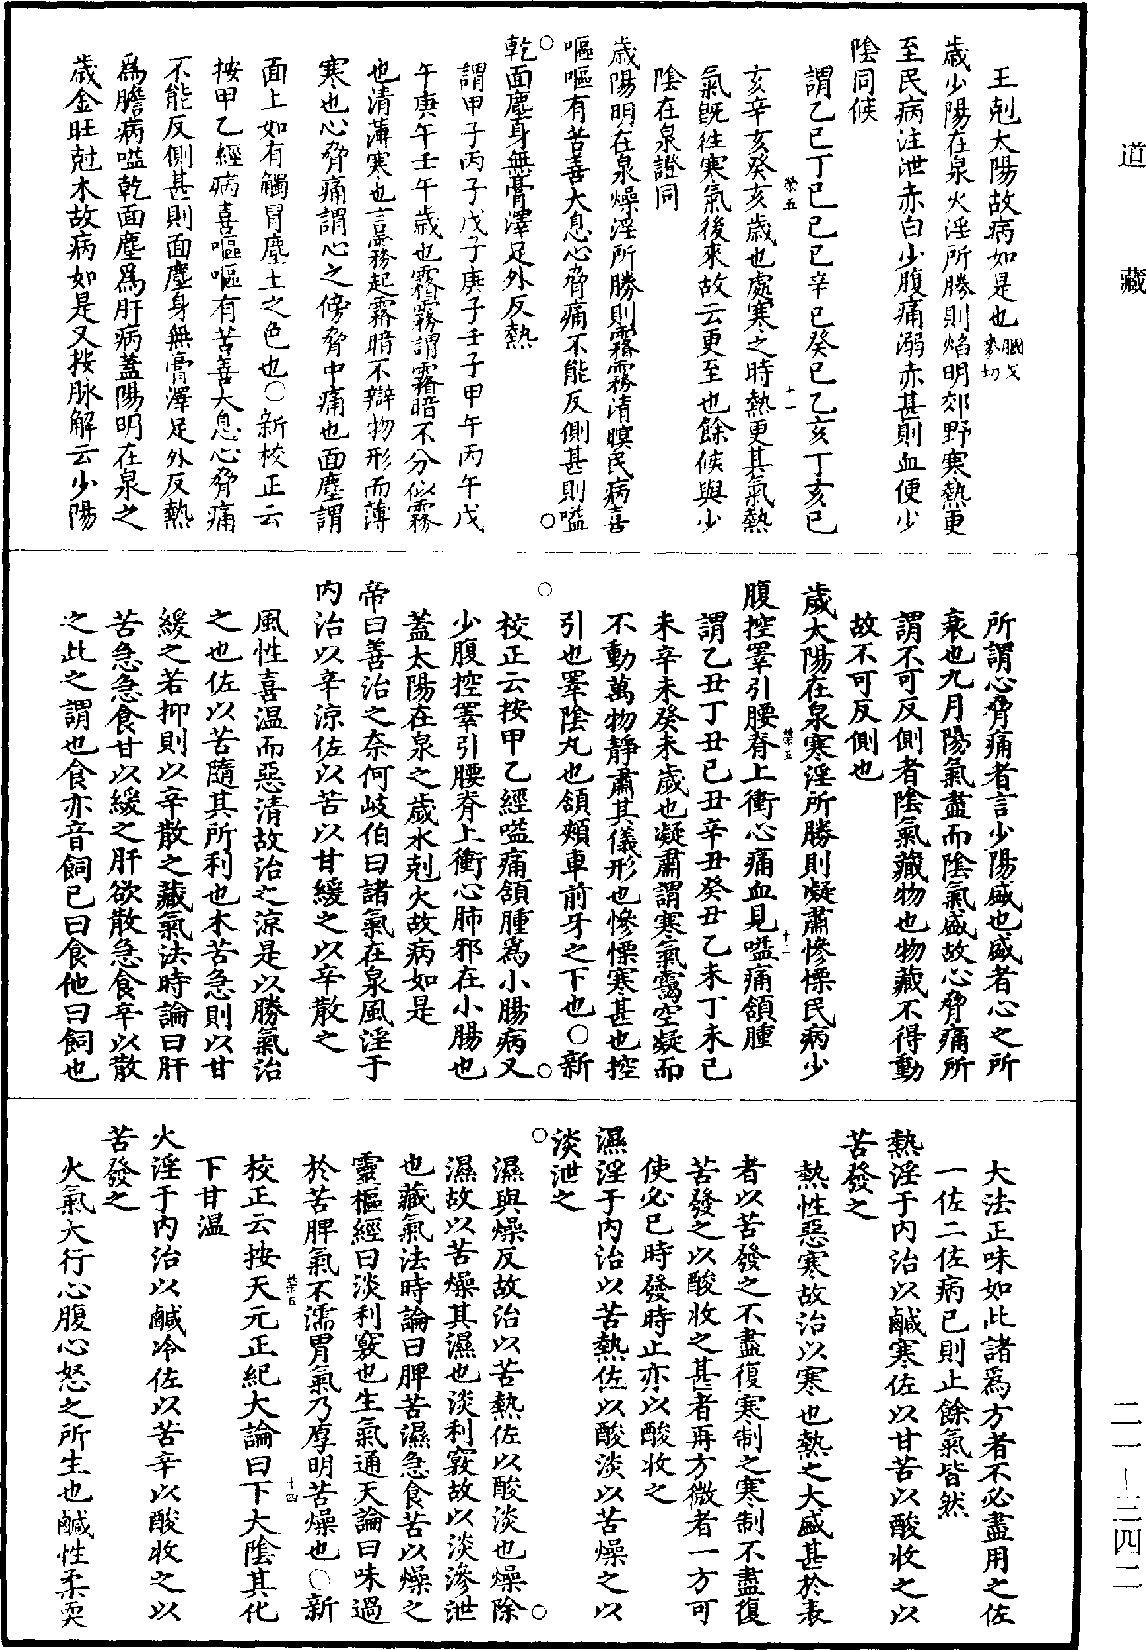 道藏
王剋太陽故病如是也䐃戈麥切
歲少陽在泉火淫所勝則焰明郊野寒熱更
至民病注泄赤白少腹痛溺赤甚則血便少
陰同候
謂乙巳丁巳己巳辛巳癸巳乙亥丁亥己
亥辛亥癸亥歲也處寒之時熱更其氣熱
氣既往寒氣後來故云更至也餘候與少
陰在泉證同
歲陽明在泉燥淫所勝則霿霧清暝民病喜
嘔嘔有苦善大息心脅痛不能反側甚則嗌
乾面塵身無膏澤足外反熱
謂甲子丙子戊子庚子壬子甲午丙午戊
午庚午壬午歲也霿霧謂霿暗不分似霧
也清薄寒也言霧起霿暗不辯物形而薄
寒也心脅痛謂心之傍脅中痛也面塵謂
面上如有觸冒塵土之色也○新校正云
按甲乙經病喜嘔嘔有苦善大息心脅痛
不能反側甚則面塵身無膏澤足外反熱
爲膽病嗌乾面塵爲肝病蓋陽明在泉之
歲金旺剋木故病如是又按脉解云少陽
所謂心脅痛者言少陽盛也盛者心之所
表也九月陽氣盡而陰氣盛故心脅痛所
謂不可反側者陰氣藏物也物藏不得動
故不可反側也
歲太陽在泉寒淫所勝則凝肅慘慄民病少
腹控睪引腰脊上衝心痛血見嗌痛頷腫
謂乙丑丁丑己丑辛丑癸丑乙未丁未己
未辛未癸未歲也凝肅謂寒氣靄空凝而
不動萬物靜肅其儀形也慘慄寒甚也控
引也睪陰丸也頷頰車前牙之下也○新
校正云按甲乙經嗌痛頷腫爲小腸病又
少腹控睪引腰脊上衝心肺邪在小腸也
蓋太陽在泉之歲水剋火故病如是
帝曰善治之奈何岐伯曰諸氣在泉風淫于
内治以辛涼佐以苦以甘緩之以辛散之
風性喜温而惡清故治之涼是以勝氣治
之也佐以苦隨其所利也木苦急則以甘
緩之若抑則以辛散之藏氣法時論曰肝
苦急急食甘以緩之肝欲散急食辛以散
之此之謂也食亦音飼已曰食他曰飼也
大法正味如此諸爲方者不必盡用之佐
一佐二佐病已則止餘氣皆然
熱淫于内治以鹹寒佐以甘苦以酸收之以
苦發之
熱性惡寒故治以寒也熱之大盛甚於表
者以苦發之不盡復寒制之寒制不盡復
苦發之以酸收之甚者再方微者一方可
使必已時發時止亦以酸收之
濕淫于内治以苦熱佐以酸淡以苦燥之以
淡泄之
濕與燥反故治以苦熱佐以酸淡也燥除
濕故以苦燥其濕也淡利竅故以淡滲泄
也藏氣法時論曰脾苦濕急食苦以燥之
靈樞經曰淡利竅也生氣通天論曰味過
於苦脾氣不濡胃氣乃厚明苦燥也○新
校正云按天元正紀大論曰下太陰其化
下甘温
火淫于内治以鹹冷佐以苦辛以酸收之以
苦發之
火氣大行心腹心怒之所生也鹹性柔耎
二一—三四二